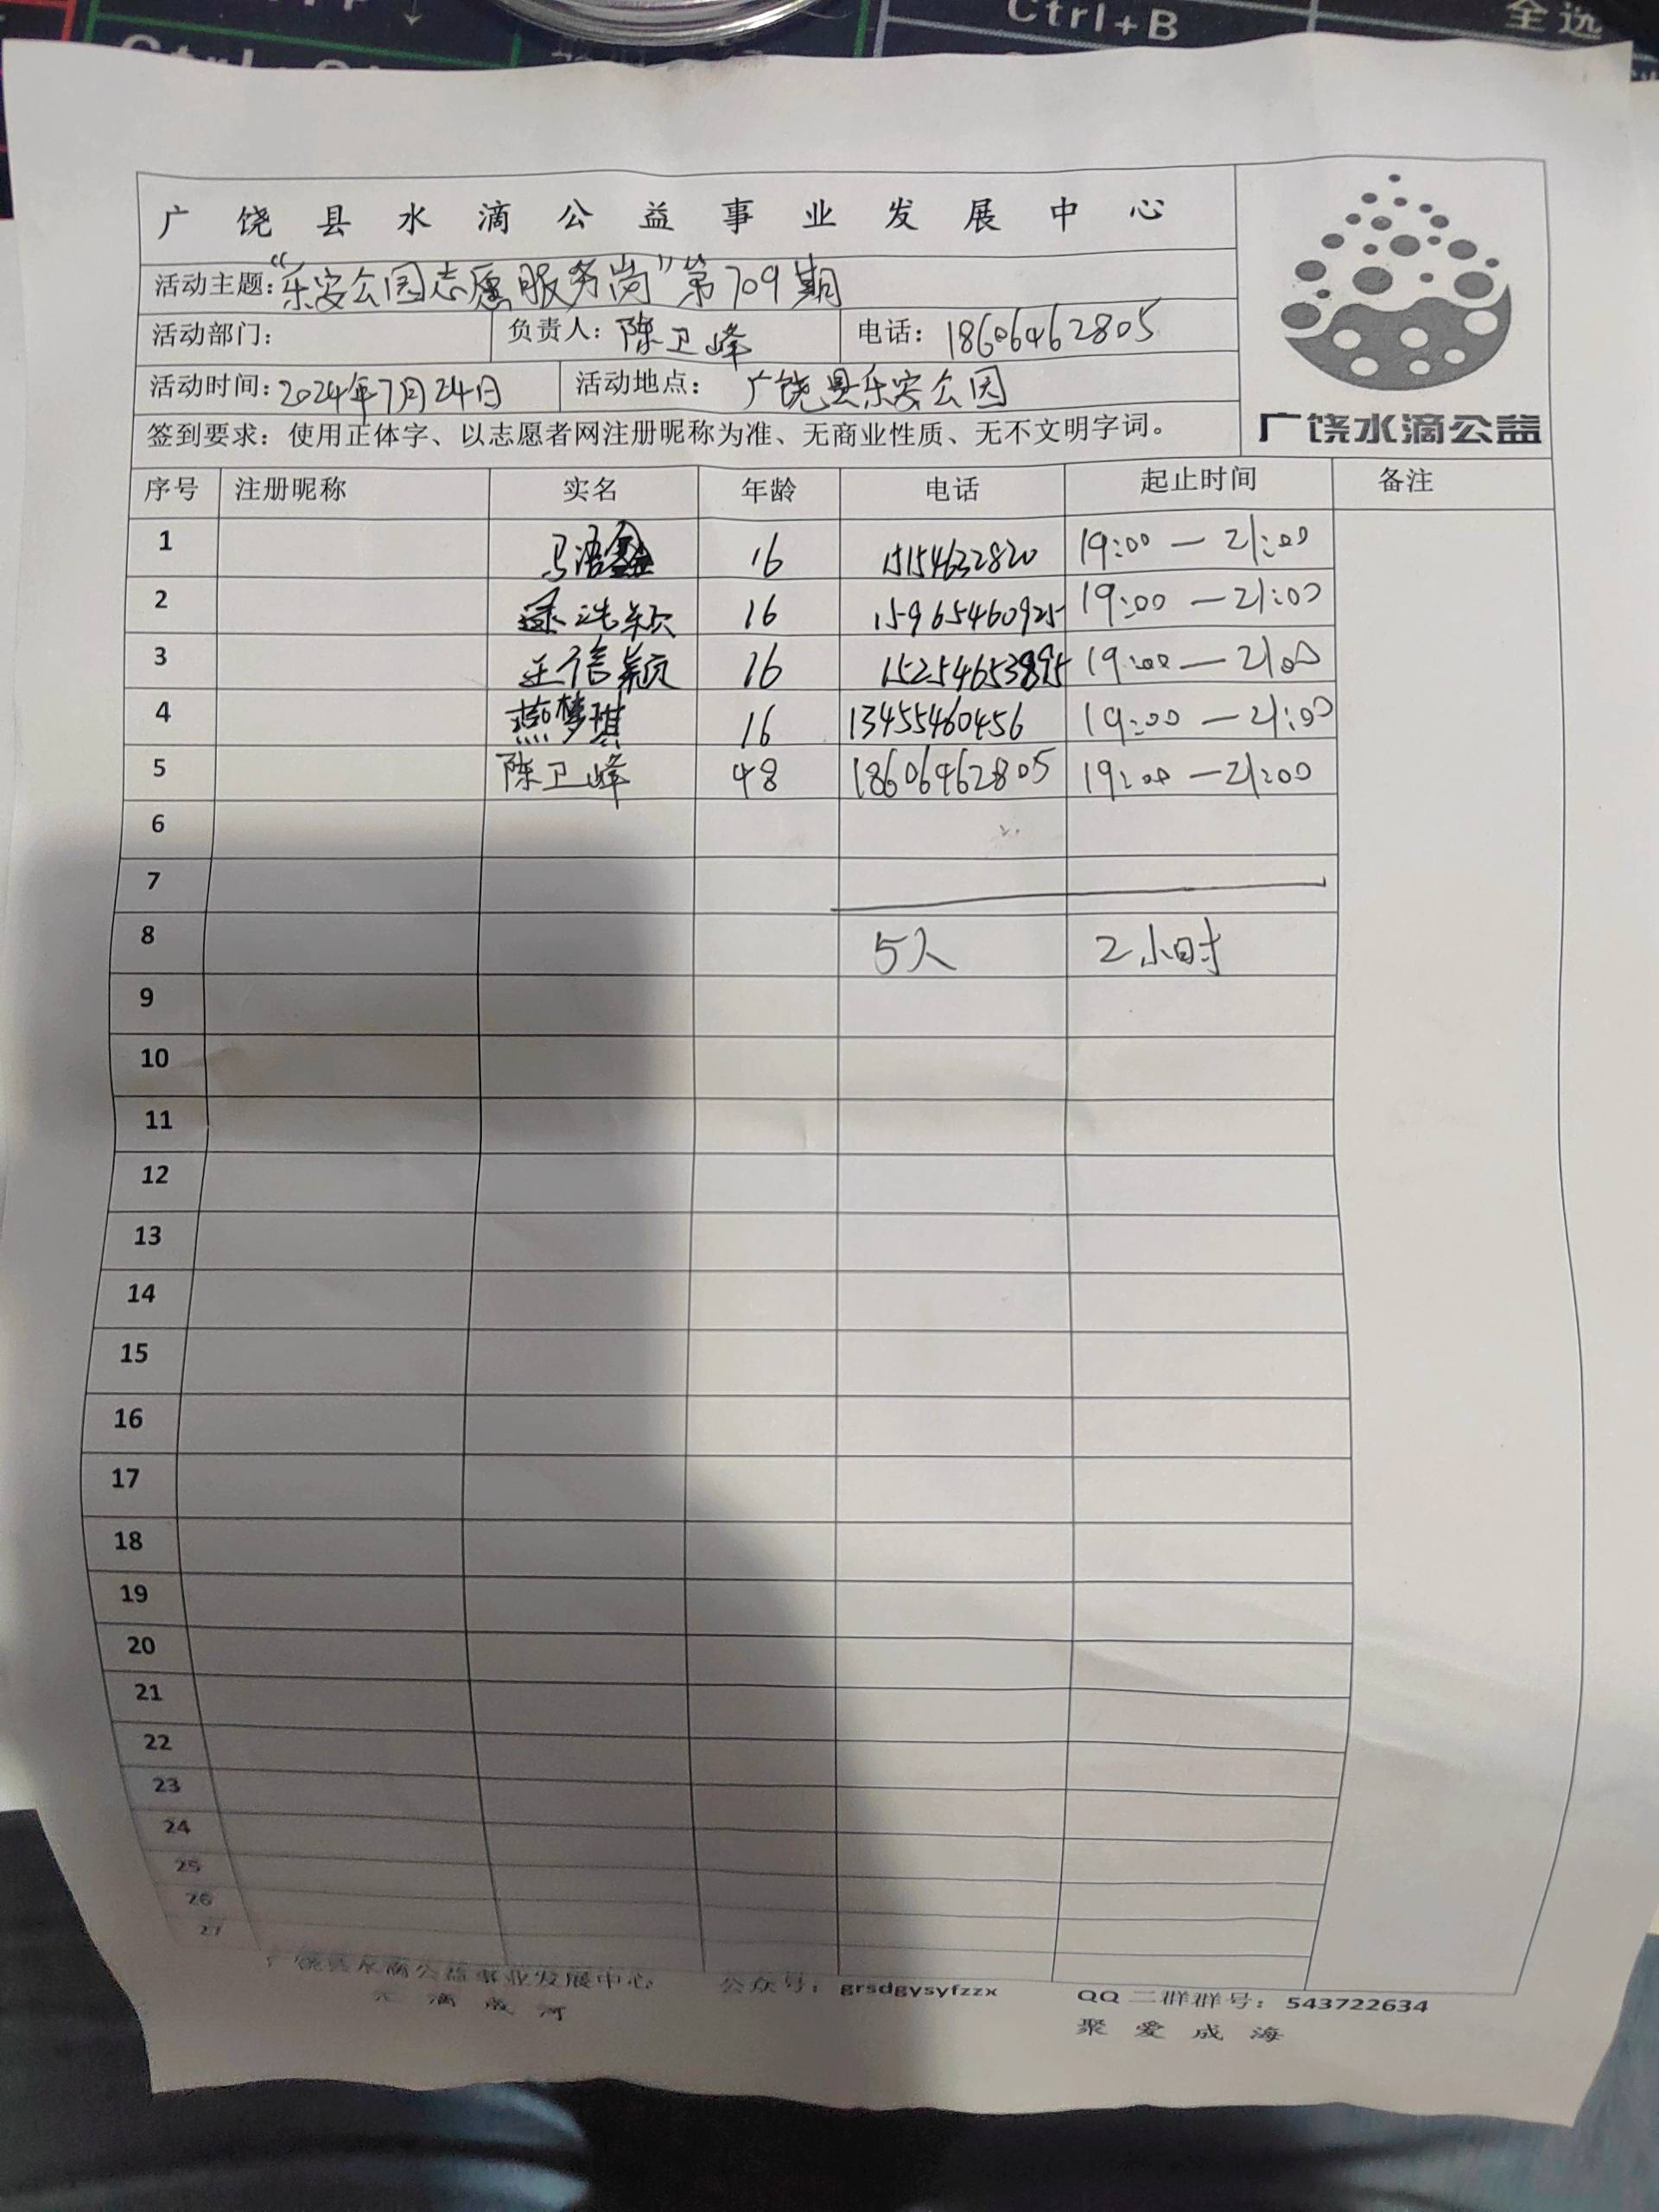 Ctrl+B
全选
广饶县水滴公益事业发展中心
活动主题：“乐安公园志愿服务岗”第709期
活动部门： 负责人：陈卫峰 电话：18606462805
活动时间：2024年7月24日 活动地点：广饶县乐安公园
签到要求：使用正体字、以志愿者网注册昵称为准、无商业性质、无不文明字词。
广饶水滴公益
序号 注册昵称 实名 年龄 电话 起止时间 备注
1 马语 16 15154632820 19:00—21:00
2 颖 16 15965460925 19:00—21:00
3 信颖 16 15254653895 19:00—21:00
4 燕梦琪 16 13455460456 19:00—21:00
5 陈卫峰 48 18606462805 19:00—21:00
6
7
8 5人 2小时
9
10
11
12
13
14
15
16
17
18
19
20
21
22
23
24
25
26
27
广饶县水滴公益事业发展中心 公众号：grsdgysyfzzx QQ二群群号：543722634
汇滴成河 聚爱成海